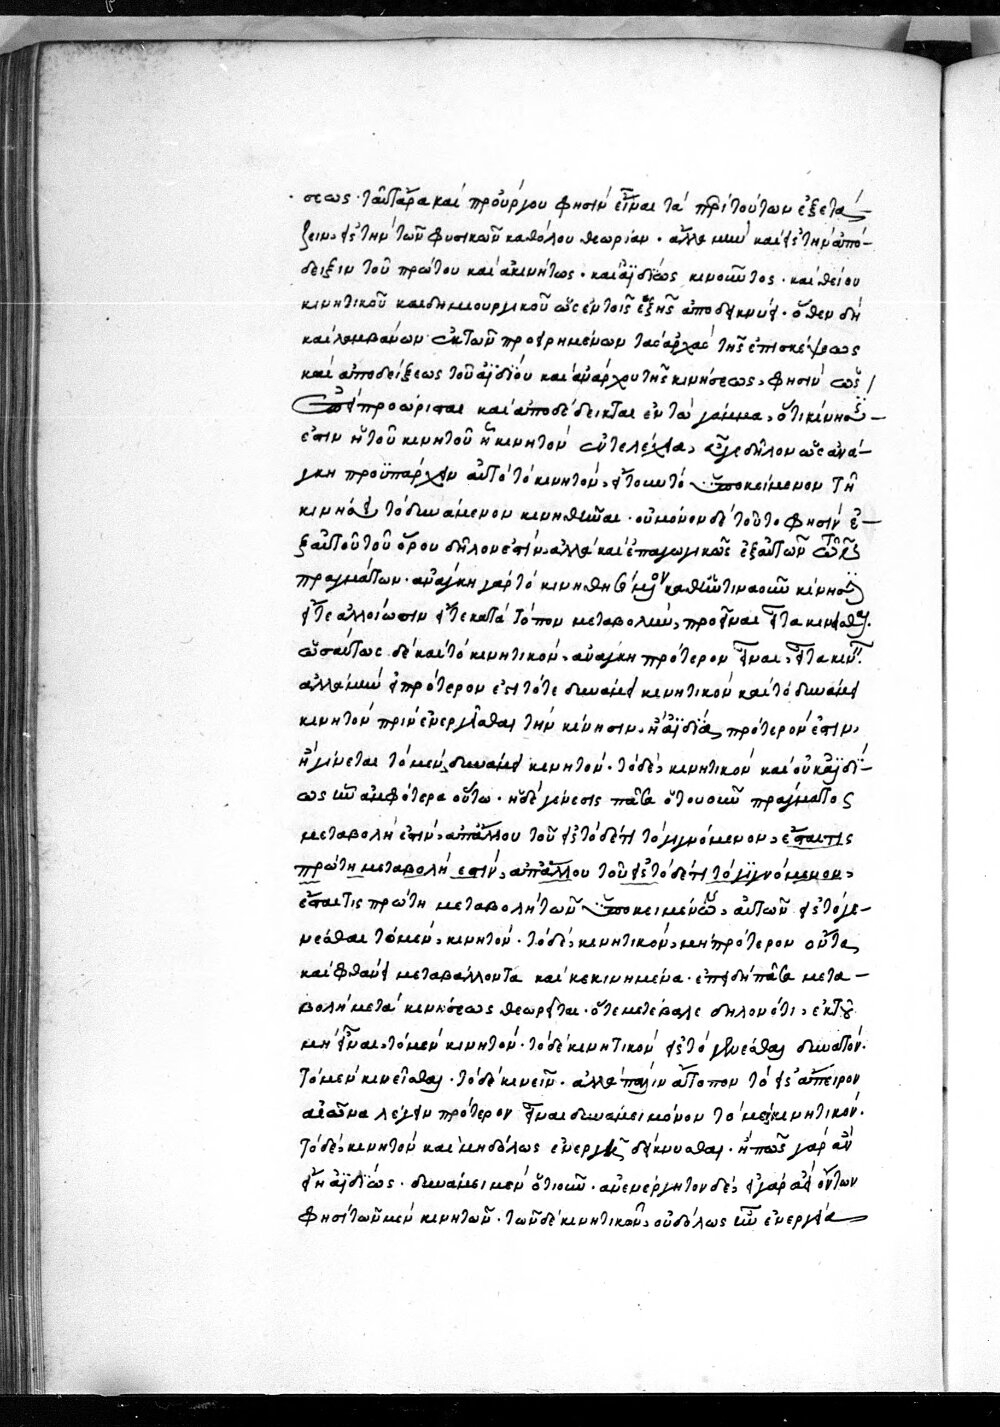 σεως· ταῦτ' ἄρα καὶ προὔργου φησὶν εἶναι τὰ περὶ τούτων ἐξετά-
ζειν, εἰς τὴν τῶν φυσικῶν καθόλου θεωρίαν· ἀλλὰ μὴν καὶ εἰς τὴν ἀπό-
δειξιν τοῦ πρώτου καὶ ἀκινήτως· καὶ ἀϊδίως κινοῦντος· καὶ θείου
κινητικοῦ καὶ δημιουργικοῦ ὡς ἐν τοῖς ἑξῆς ἀποδείκνυσι· ὅθεν δὴ
καὶ λαμβάνων ἐκ τῶν προειρημένων τὰς ἀρχὰς τῆς ἐπισκέψεως
καὶ ἀποδείξεως τοῦ ἀϊδίου καὶ ἀνάρχου τῆς κινήσεως, φησὶν ὡς
ἐπεὶ προώρισται καὶ ἀποδέδεικται ἐν τῷ γάμμα, ὅτι κίνησις
ἐστιν ἡ τοῦ κινητοῦ ᾗ κινητὸν ἐντελέχεια, ἆρά γε δῆλον ὡς ἀνά-
γκη προϋπάρχειν αὐτὸ τὸ κινητὸν, ἤτοι τὸ ὑποκείμενον τῇ
κινήσει τὸ δυνάμενον κινηθῆναι· οὐ μόνον δὲ τοῦτο φησὶν ἐ-
ξ αὐτοῦ τοῦ ὅρου δῆλον ἐστὶν, ἀλλὰ καὶ ἐπαγωγικῶς ἐξ αὐτῶν τῶν
πραγμάτων· ἀνάγκη γὰρ τὸ κινηθησόμενον καθ' ἥντιν' οὖν κίνησιν
εἴτε ἀλλοίωσιν εἴτε κατὰ τόπον μεταβολὴν, προεῖναι εἶτα κινεῖσθαι.
ὡσαύτως δὲ καὶ τὸ κινητικὸν, ἀνάγκη πρότερον εἶναι, εἶτα κινεῖν.
ἀλλὰ μὴν εἰ πρότερον ἐστὶ τότε δυνάμει κινητικὸν καὶ τὸ δυνάμει
κινητὸν πρὶν ἐνεργεῖσθαι τὴν κίνησιν, ἢ ἀΐδια πρότερον ἐστιν,
ἢ γίνεται τὸ μὲν, δυνάμει κινητὸν· τὸ δὲ, κινητικὸν καὶ οὐκ ἀϊδί-
ως ἦν ἀμφότερα οὕτω· ἡ δὲ γένεσις παντὸς ὅτου οὖν πράγματος
μεταβολή ἐστιν, ἀπ' ἄλλου τοῦ εἰς τόδέ τι τὸ γιγνόμενον, ἔσται τις
πρώτη μεταβολή ἐστιν, ἀπ' ἄλλου τοῦ εἰς τόδέ τι τὸ γιγνόμενον,
ἔσται τις πρώτη μεταβολὴ τῶν ὑποκειμένων, αὐτῶν εἰς τὸ γε-
νέσθαι τὸ μὲν, κινητὸν· τὸ δὲ, κινητικὸν, μὴ πρότερον ὄντα,
καὶ φθάνει μεταβάλλοντα καὶ κεκινημένα· ἐπειδὴ πᾶσα μετα-
βολὴ μετὰ κινήσεως θεωρεῖται· ὅτε μετέβαλε δηλονότι, ἐκ τοῦ
μὴ εἶναι, τὸ μὲν κινητὸν· τὸ δὲ κινητικὸν εἰς τὸ γενέσθαι δυνατὸν·
τὸ μὲν κινεῖσθαι· τὸ δὲ κινεῖν· ἀλλὰ πάλιν ἄτοπον τὸ εἰς ἄπειρον
αἰῶνα λέγειν πρότερον εἶναι δυνάμει μόνον τὸ μὲν, κινητικὸν·
τὸ δὲ, κινητὸν καὶ μηδόλως ἐνεργεῖν δείκνυσθαι· ἢ πῶς γὰρ ἂν
εἴη ἀϊδίως· δυνάμει μέν ὅτι οὖν· ἀνενέργητον δὲ, εἰ γὰρ ἀεὶ ὄντων
φησὶ τῶν μὲν κινητῶν· τῶν δὲ κινητικῶν, οὐδόλως ἦν ἐνεργεία